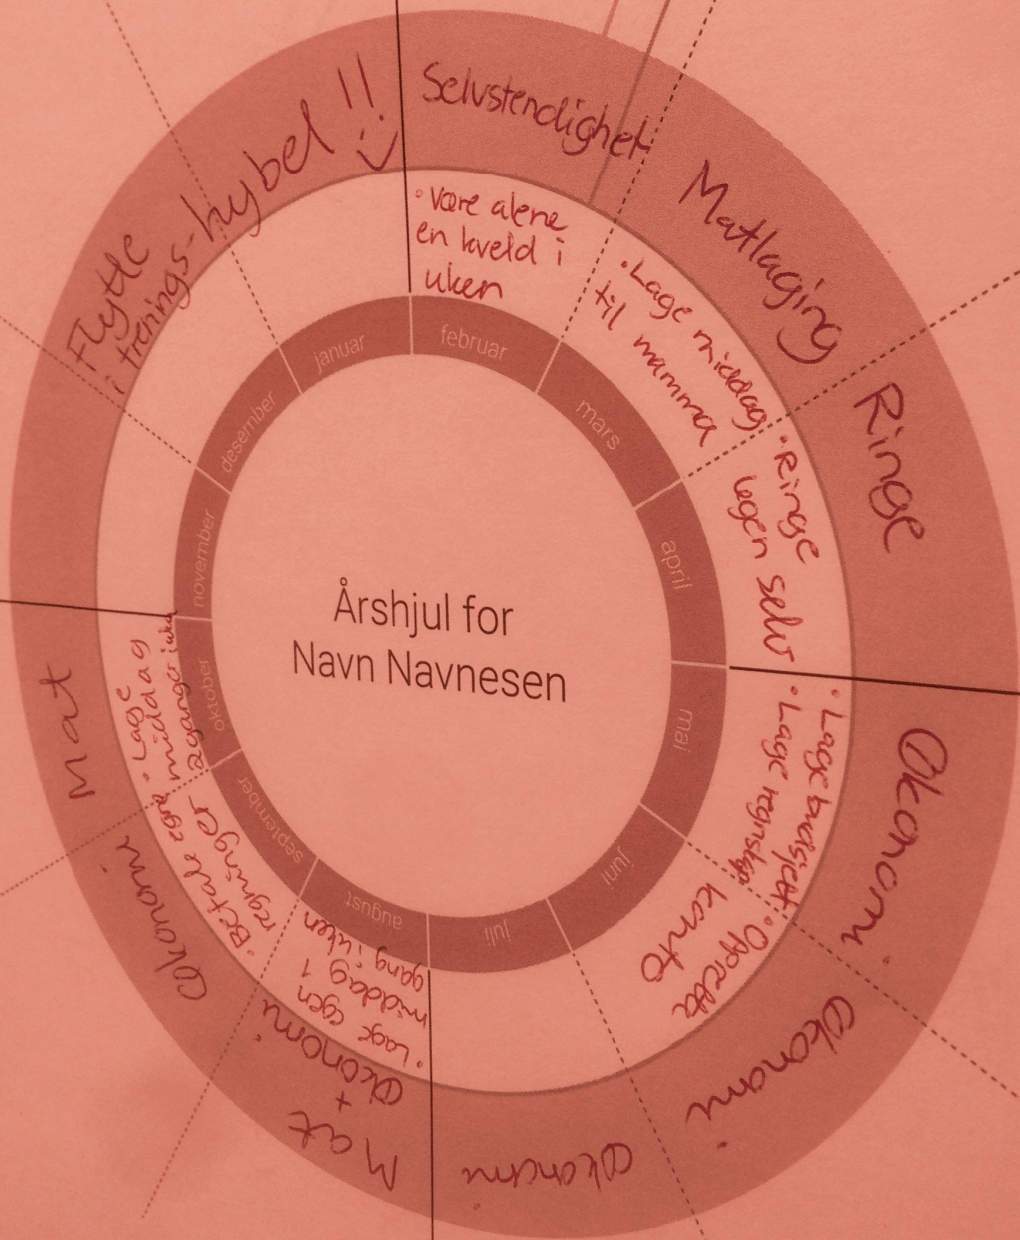 Årshjul for
Navn Navnesen
januar
februar
mars
april
mai
juni
juli
august
september
oktober
november
desember
Selvstendighet
• Være alene
en kveld i
uken
Matlaging
• Lage middag
til mamma
Ringe
• Ringe
legen selv
Økonomi
• Lage budsjett
• Lage regnskap
Økonomi
• Oppretta
konto
Økonomi
Mat
+
Økonomi
• Lage egen
middag 1
gang i uken
Økonomi
• Betale egne
regninger
Mat
• Lage
middag
2 ganger i uken
Flytte
i trenings-hybel!! :)